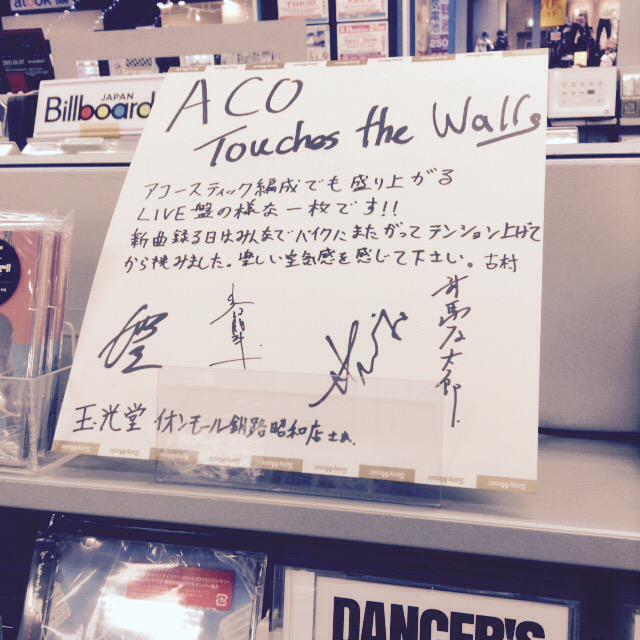 JAPAN
Billboard
ACO
Touches the Walls
アコースティック編成でも盛り上がる
LIVE盤の様な一枚です!!
新曲録る日はみんなでバイクにまたがってテンション上げて
から挑みました。楽しい空気感を感じて下さい。古村
玉光堂 イオンモール釧路昭和店さん
DANCER'S